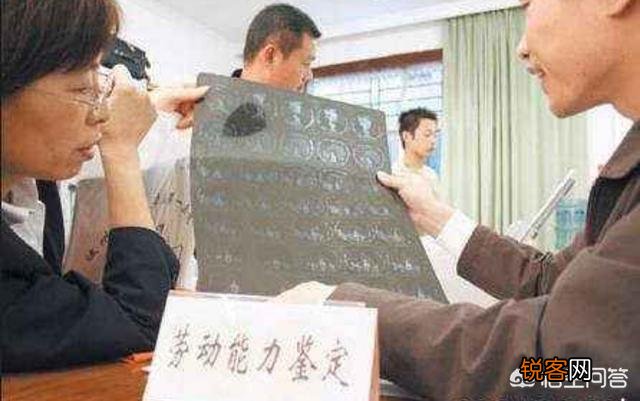 劳动能力鉴定
锐客网
悟空问答